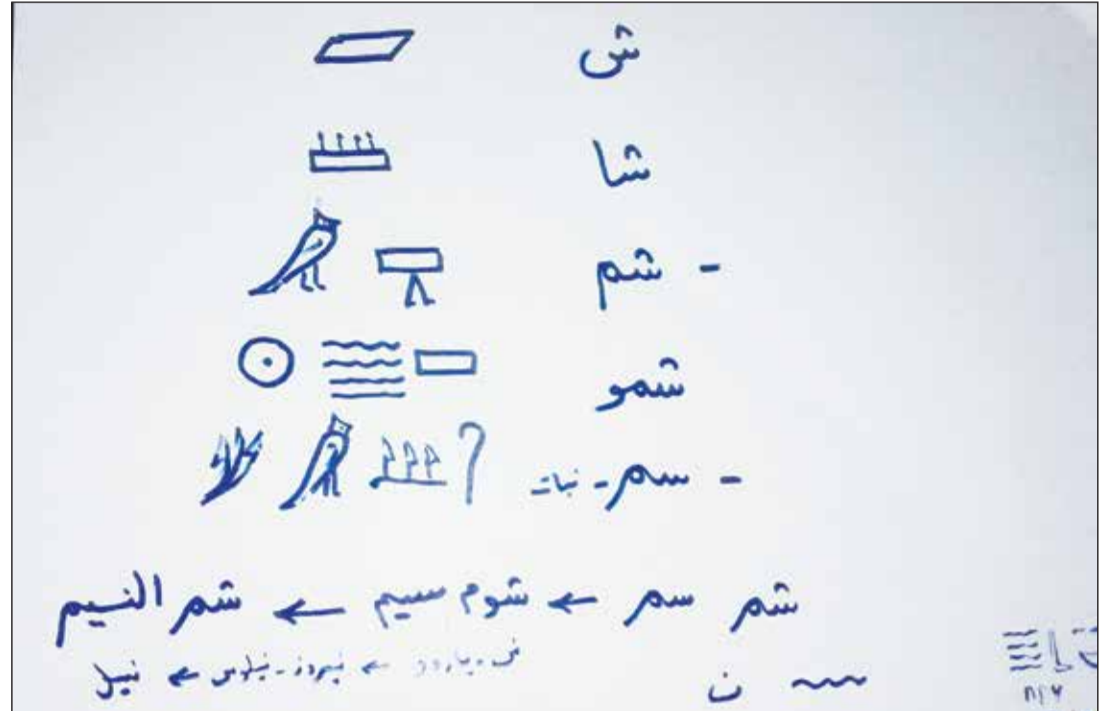 ش
شا
- شم
شمو
- سم - نبات
شم سم ← شوم سيم ← شم النسيم
← نيروز - نيلوس ← نيل
ن